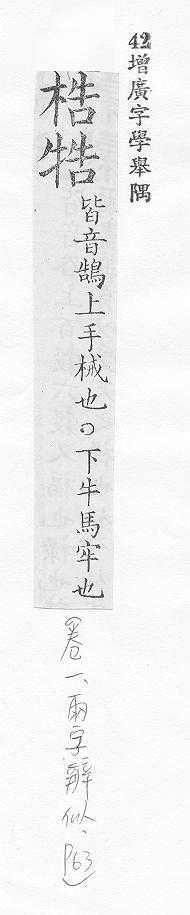 42增廣字學舉隅
梏牿
皆音鵠上手械也○下牛馬牢也
(卷一、兩字辨似、P63)